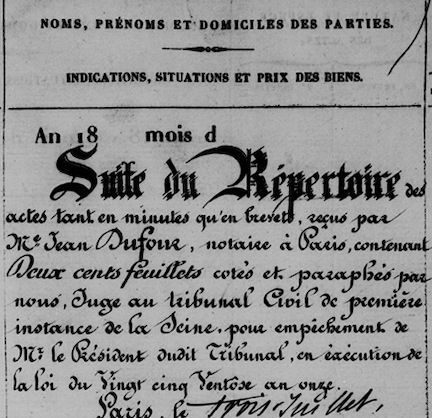 NOMS, PRÉNOMS ET DOMICILES DES PARTIES.
INDICATIONS, SITUATIONS ET PRIX DES BIENS.
An 18 mois d
Suite du Répertoire des
actes tant en minutes qu'en brevets, reçus par
Me. Jean Dufour, notaire à Paris, contenant
Deux cents feuillets cotés et paraphés par
nous, Juge au tribunal Civil de première
instance de la Seine, pour empêchement de
Mr. le Président dudit Tribunal, en exécution de
la loi du Vingt cinq Ventôse an onze.
Paris, le trois Juillet,